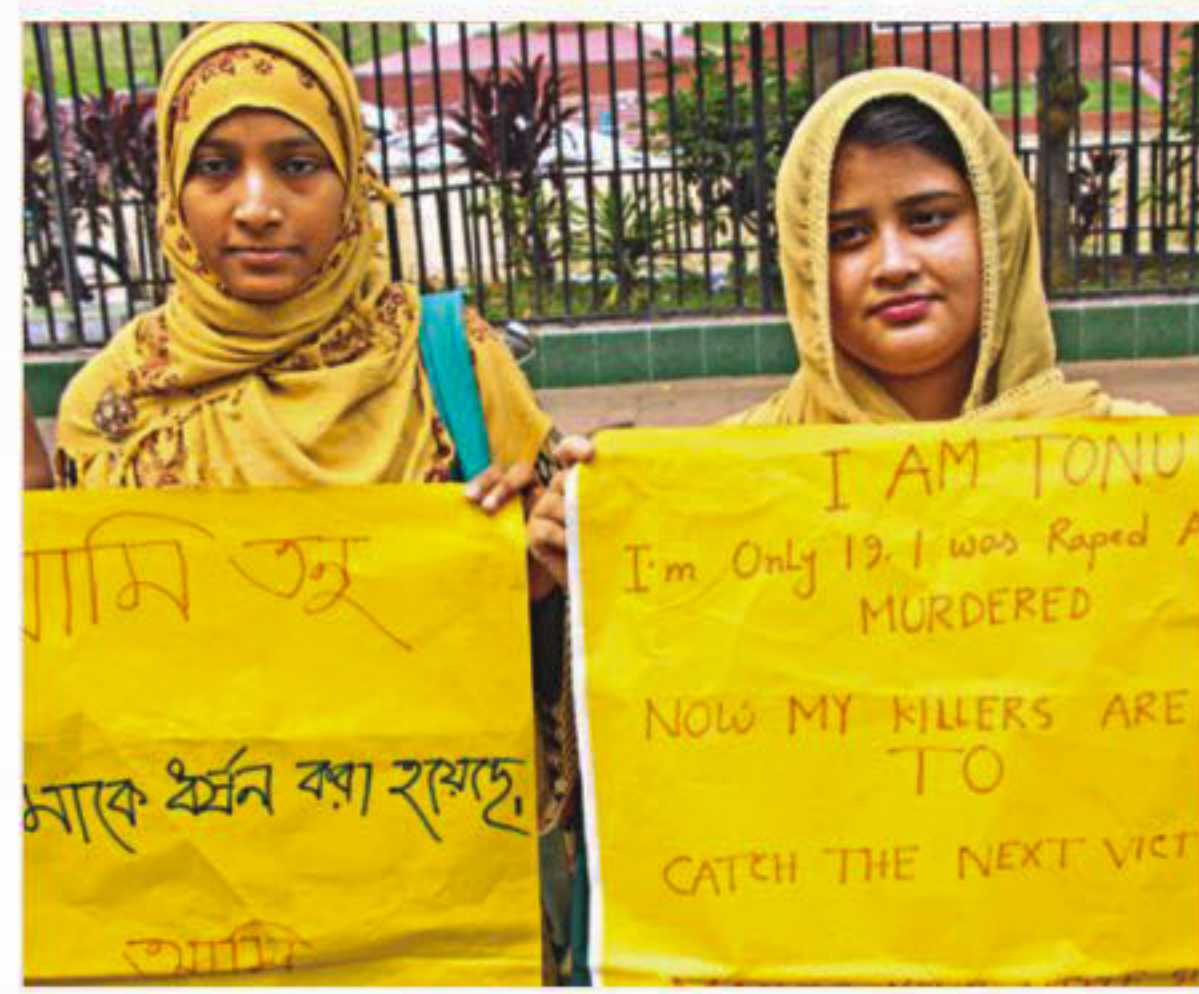 তনু
ধর্ষন করা হয়েছে,
আমি
I AM TONU
I'm Only 19. I was Raped
MURDERED
NOW MY KILLERS ARE
TO
CATCH THE NEXT